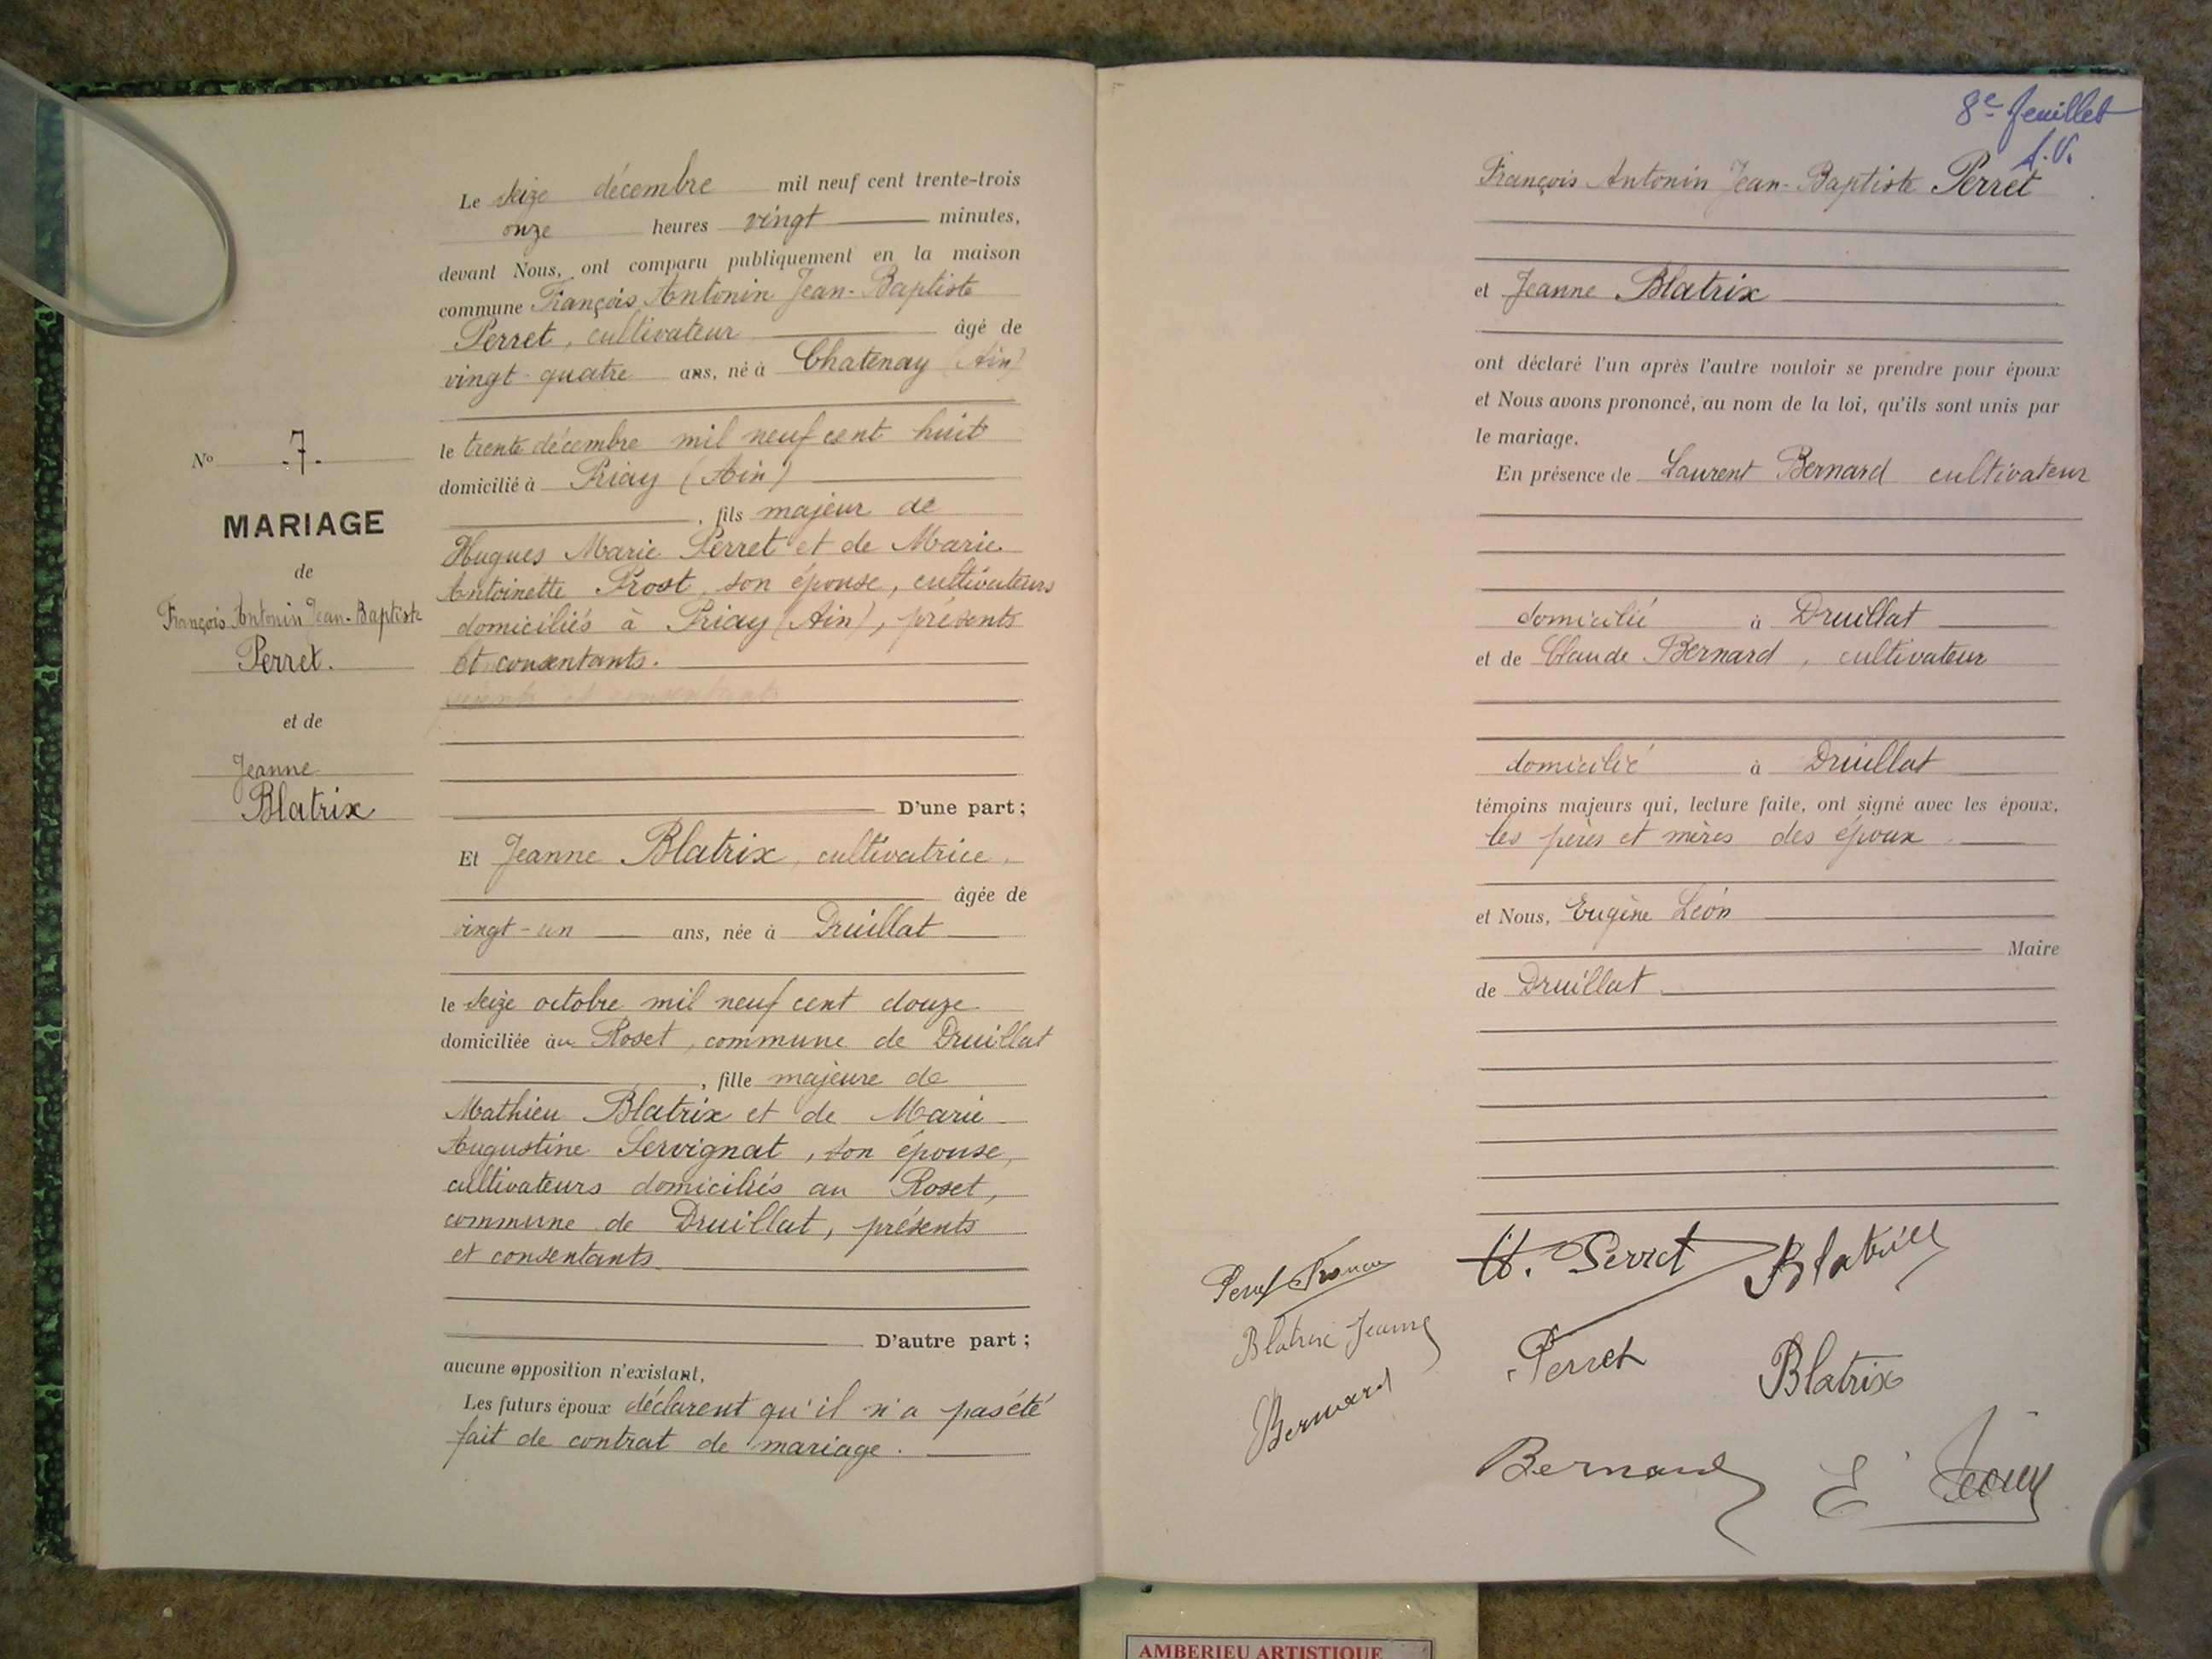 Le seize décembre mil neuf cent trente-trois
onze heures vingt minutes,
devant Nous, ont comparu publiquement en la maison
commune François Antonin Jean-Baptiste
Perret, cultivateur âgé de
vingt-quatre ans, né à Chatenay (Ain)
le trente décembre mil neuf cent huit
domicilié à Priay (Ain)
, fils majeur de
Hugues Marie Perret et de Marie
Antoinette Prost son épouse, cultivateurs
domiciliés à Priay (Ain), présents
et consentants.
présents et consentants
D'une part ;
Et Jeanne Blatrix, cultivatrice,
âgée de
vingt-un ans, née à Druillat
le seize octobre mil neuf cent douze
domiciliée au Roset, commune de Druillat
, fille majeure de
Mathieu Blatrix et de Marie
Augustine Servignat, son épouse,
cultivateurs domiciliés au Roset,
commune de Druillat, présents
et consentants
D'autre part ;
aucune opposition n'existant,
Les futurs époux déclarent qu'il n'a pas été
fait de contrat de mariage.
No 7.
MARIAGE
de
François Antonin Jean-Baptiste
Perret.
et de
Jeanne
Blatrix
8e feuillet
François Antonin Jean-Baptiste Perret
et Jeanne Blatrix
ont déclaré l'un après l'autre vouloir se prendre pour époux
et Nous avons prononcé, au nom de la loi, qu'ils sont unis par
le mariage.
En présence de Laurent Bernard cultivateur
domicilié à Druillat
et de Claude Bernard, cultivateur
domicilié à Druillat
témoins majeurs qui, lecture faite, ont signé avec les époux,
les pères et mères des époux
et Nous, Eugène Léon
Maire
de Druillat
H. Perret Blatrix
Blatrix Jeanne
Perret Blatrix
Bernard
Bernard E. Léon
AMBERIEU ARTISTIQUE